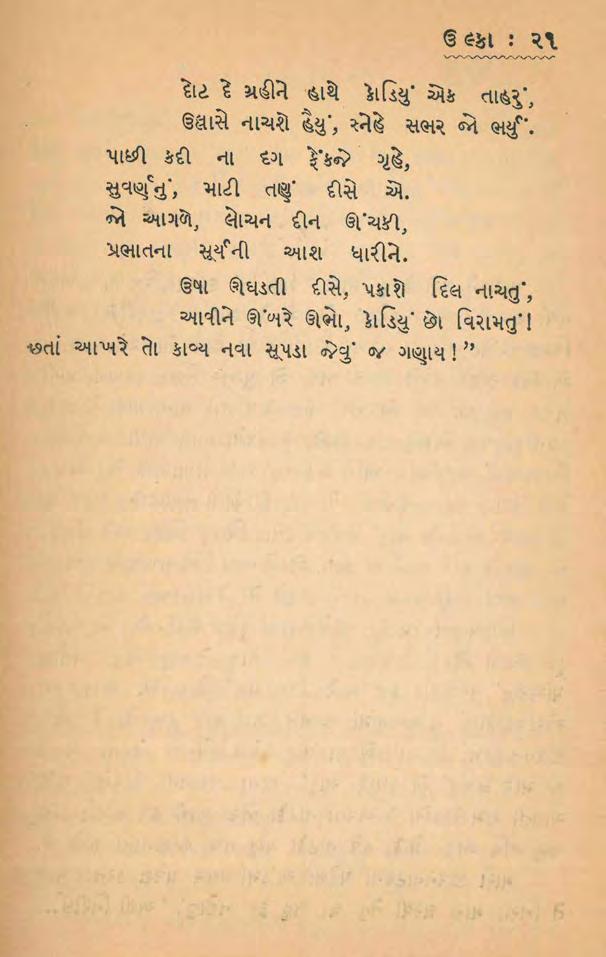 ઉલ્કા : ૨૧
દોટ દે ગ્રહીને હાથે કોડિયું એક તાહરું,
ઉલ્લાસે નાચશે હૈયું, સ્નેહે સભર જો ભર્યું.
પાછી કદી ના દગ ફેંકજે ગૃહે,
સુવર્ણનું, માટી તણું દીસે એ.
જો આગળે, લોચન દીન ઊંચકી,
પ્રભાતના સૂર્યની આશ ધારીને.
ઉષા ઊઘડતી દીસે, પકાશે દિલ નાચતું,
આવીને ઊંબરે ઊભો, કોડિયું છો વિરામતું!
છતાં આખરે તો કાવ્ય નવા સૂપડા જેવું જ ગણાય!”